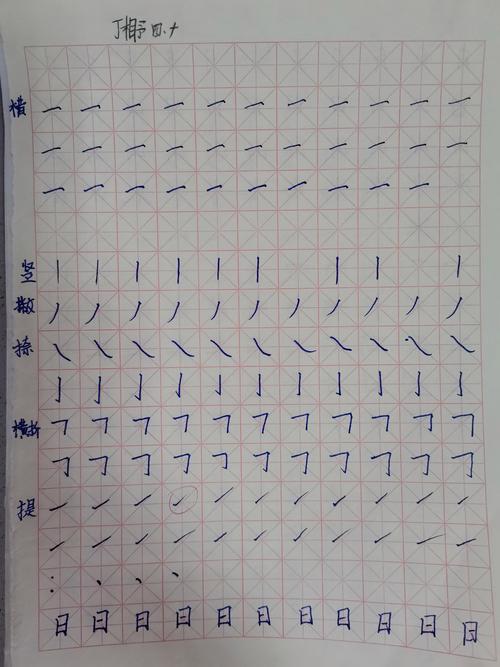 丁相予 四.十
横 一 一 一 一 一 一 一 一 一 一 一
一 一 一 一 一 一 一 一 一 一 一
一 一 一 一 一 一 一 一 一 一
竖 丨 丨 丨 丨 丨 丨 丨 丨 丨
撇 丿 丿 丿 丿 丿 丿 丿 丿 丿 丿 丿
捺 ㇏ ㇏ ㇏ ㇏ ㇏ ㇏ ㇏ ㇏ ㇏ ㇏ ㇏
亅 亅 亅 亅 亅 亅 亅 亅 亅 亅 亅
横折 ㇕ ㇕ ㇕ ㇕ ㇕ ㇕ ㇕ ㇕ ㇕ ㇕ ㇕
㇆ ㇆ ㇆ ㇆ ㇆ ㇆ ㇆ ㇆ ㇆ ㇆ ㇆
提 ㇀ ㇀ ㇀ ㇀ ㇀ ㇀ ㇀ ㇀ ㇀ ㇀ ㇀
㇀ ㇀ ㇀ ㇀ ㇀ ㇀ ㇀ ㇀ ㇀ ㇀ ㇀
丶 丶 丶 丶
日 日 日 日 日 日 日 日 日 日 日